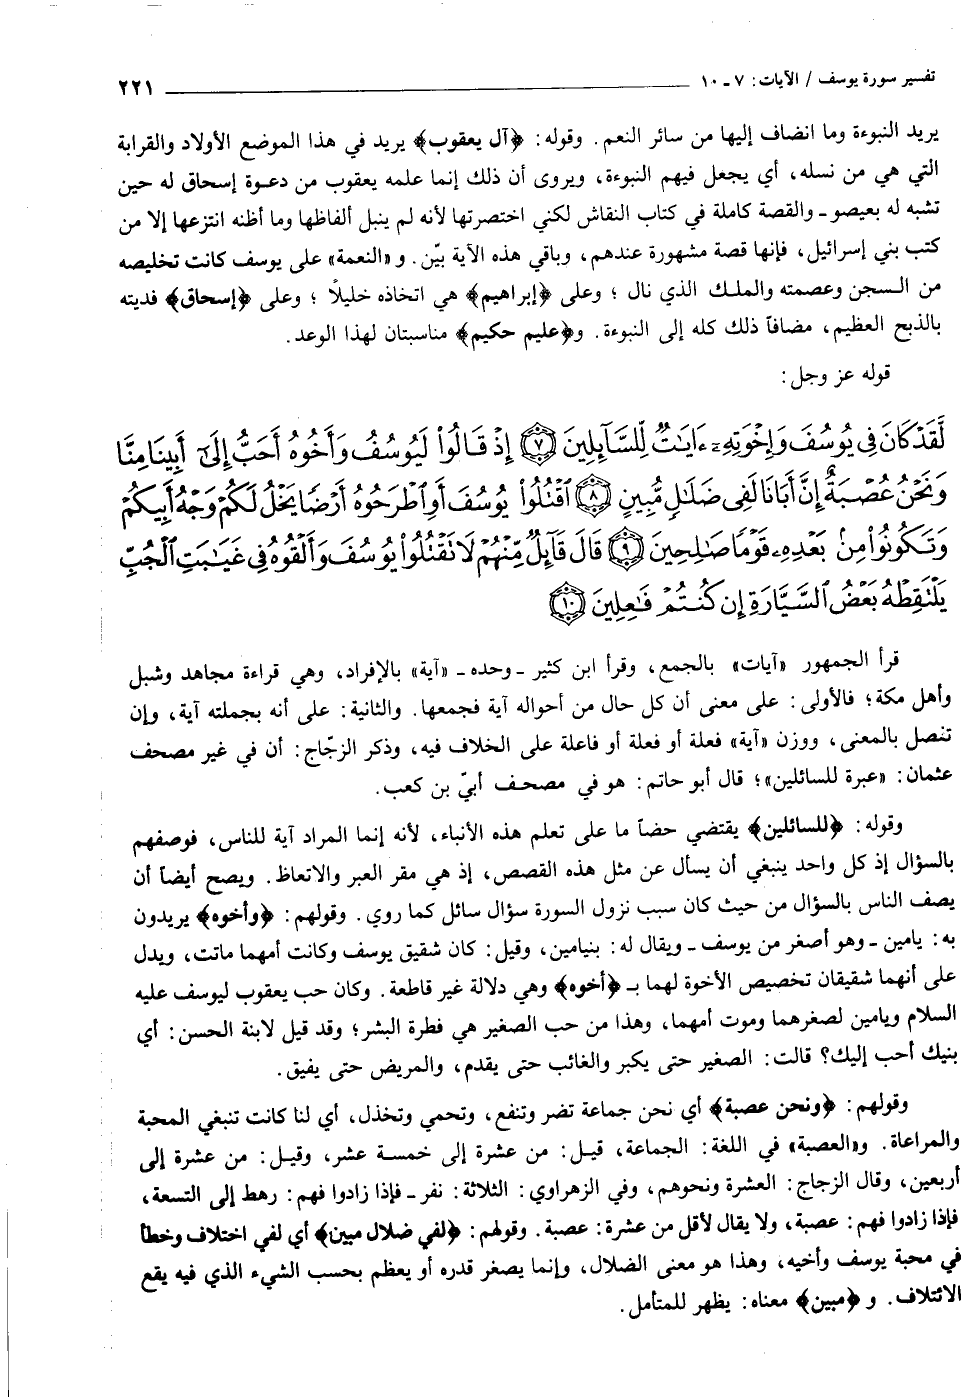 تفسير سورة يوسف / الآيات: ٧ ـ ١٠ ٢٢١
يريد النبوءة وما انضاف إليها من سائر النعم. وقوله: ﴿آل يعقوب﴾ يريد في هذا الموضع الأولاد والقرابة
التي هي من نسله، أي يجعل فيهم النبوءة، ويروى أن ذلك إنما علمه يعقوب من دعوة إسحاق له حين
تشبه له بعيصو ـ والقصة كاملة في كتاب النقاش لكني اختصرتها لأنه لم ينبل ألفاظها وما أظنه انتزعها إلا من
كتب بني إسرائيل، فإنها قصة مشهورة عندهم، وباقي هذه الآية بيّن. و «النعمة» على يوسف كانت تخليصه
من السجن وعصمته والملك الذي نال ؛ وعلى ﴿إبراهيم﴾ هي اتخاذه خليلاً ؛ وعلى ﴿إسحاق﴾ فديته
بالذبح العظيم، مضافاً ذلك كله إلى النبوءة. و﴿عليم حكيم﴾ مناسبتان لهذا الوعد.
قوله عز وجل:
لَّقَدْ كَانَ فِي يُوسُفَ وَإِخْوَتِهِۦٓ ءَايَٰتٌ لِّلسَّآئِلِينَ ٧ إِذْ قَالُوا۟ لَيُوسُفُ وَأَخُوهُ أَحَبُّ إِلَىٰٓ أَبِينَا مِنَّا
وَنَحْنُ عُصْبَةٌ إِنَّ أَبَانَا لَفِي ضَلَٰلٍ مُّبِينٍ ٨ ٱقْتُلُوا۟ يُوسُفَ أَوِ ٱطْرَحُوهُ أَرْضًا يَخْلُ لَكُمْ وَجْهُ أَبِيكُمْ
وَتَكُونُوا۟ مِنۢ بَعْدِهِۦ قَوْمًا صَٰلِحِينَ ٩ قَالَ قَآئِلٌ مِّنْهُمْ لَا تَقْتُلُوا۟ يُوسُفَ وَأَلْقُوهُ فِي غَيَٰبَتِ ٱلْجُبِّ
يَلْتَقِطْهُ بَعْضُ ٱلسَّيَّارَةِ إِن كُنتُمْ فَٰعِلِينَ ١٠
قرأ الجمهور «آيات» بالجمع، وقرأ ابن كثير ـ وحده ـ «آية» بالإفراد، وهي قراءة مجاهد وشبل
وأهل مكة؛ فالأولى: على معنى أن كل حال من أحواله آية فجمعها. والثانية: على أنه بجملته آية، وإن
تنصل بالمعنى، ووزن «آية» فعلة أو فعلة أو فاعلة على الخلاف فيه، وذكر الزجّاج: أن في غير مصحف
عثمان: «عبرة للسائلين»؛ قال أبو حاتم: هو في مصحف أبيّ بن كعب.
وقوله: ﴿للسائلين﴾ يقتضي حضاً ما على تعلم هذه الأنباء، لأنه إنما المراد آية للناس، فوصفهم
بالسؤال إذ كل واحد ينبغي أن يسأل عن مثل هذه القصص، إذ هي مقر العبر والاتعاظ. ويصح أيضاً أن
يصف الناس بالسؤال من حيث كان سبب نزول السورة سؤال سائل كما روي. وقولهم: ﴿وأخوه﴾ يريدون
به: يامين ـ وهو أصغر من يوسف ـ ويقال له: بنيامين، وقيل: كان شقيق يوسف وكانت أمهما ماتت، ويدل
على أنهما شقيقان تخصيص الأخوة لهما بـ ﴿أخوه﴾ وهي دلالة غير قاطعة. وكان حب يعقوب ليوسف عليه
السلام ويامين لصغرهما وموت أمهما، وهذا من حب الصغير هي فطرة البشر؛ وقد قيل لابنة الحسن: أي
بنيك أحب إليك؟ قالت: الصغير حتى يكبر والغائب حتى يقدم، والمريض حتى يفيق.
وقولهم: ﴿ونحن عصبة﴾ أي نحن جماعة تضر وتنفع، وتحمي وتخذل، أي لنا كانت تنبغي المحبة
والمراعاة. و«العصبة» في اللغة: الجماعة، قيل: من عشرة إلى خمسة عشر، وقيل: من عشرة إلى
أربعين، وقال الزجاج: العشرة ونحوهم، وفي الزهراوي: الثلاثة: نفر ـ فإذا زادوا فهم: رهط إلى التسعة،
فإذا زادوا فهم: عصبة، ولا يقال لأقل من عشرة: عصبة. وقولهم: ﴿لفي ضلال مبين﴾ أي لفي اختلاف وخطأ
في محبة يوسف وأخيه، وهذا هو معنى الضلال، وإنما يصغر قدره أو يعظم بحسب الشيء الذي فيه يقع
الائتلاف. و ﴿مبين﴾ معناه: يظهر للمتأمل.